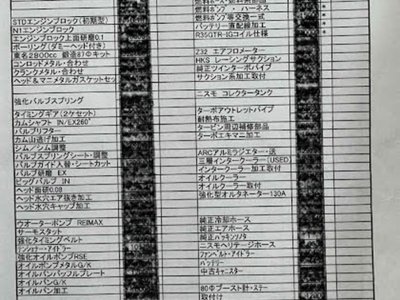 STDエンジンブロック(初期型)
N1エンジンブロック
エンジンブロック上面研磨0.1
ボーリング(ダミーヘッド付き)
東名2800cc 鍛造87Φキット
コンロッドメタル・合わせ
クランクメタル・合わせ
ヘッド&マニメタルガスケットセット
強化バルブスプリング
タイミングギア(2ケセット)
カムシャフト IN/EX260°
バルブリフター
カム山逃げ加工
シム・シム調整
バルブスプリングシート・調整
バルブガイド入替・シートカット
バルブ研磨 EX
ビッグバルブ IN
ヘッド面研0.08
ヘッド水穴エア抜き加工
ヘッド水穴キャップ加工
ウオーターポンプ REIMAX
サーモスタット
強化タイミングベルト
テンショナー・アイドラー
強化オイルポンプRSE
オイルポンプメタルG/K
オイルパンバッフルプレート
オイルパンG/K
オイルパン加工
燃料ポンプ
燃料ポンプ・ハーネス
燃料ポンプ等交換一式
バッテリー直配線加工
R35GTR-IGコイル仕様
Z32 エアフロメーター
HKS レーシングサクション
純正ツインターボパイプ
サクション系加工取付
ニスモ コレクタータンク
ターボアウトレットパイプ
耐熱布施工
タービン周辺補修部品
ターボエキマニ加工
ARCアルミラジエター・送
三層インタークーラー(USED)
インタークーラー加工取付
オイルクーラー
オイルクーラー取付
強化型オルタネーター130A
純正冷却ホース
純正エアホース
純正ハッキンソノタ
ニスモヘリテージホース
ファンベルト・アイドラー
バッテリー
中古キャニスター
80Φブースト計・ステー
取付け